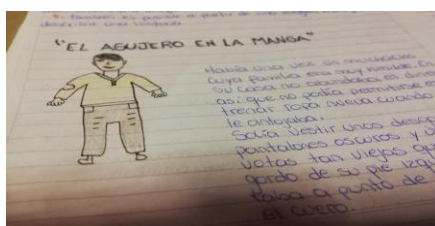 describir una
"EL AGUJERO EN LA MANGA"
Había una vez un muchacho
cuya familia era muy humilde. En
su casa no abundaba el dine
así que no podía permitirse e
trenar ropa nueva cuando
le antojaba.
Solía vestir unos
pantalones oscuros y u
votas tan viejas
gordo de su pie izq
a punto de
el cuero.